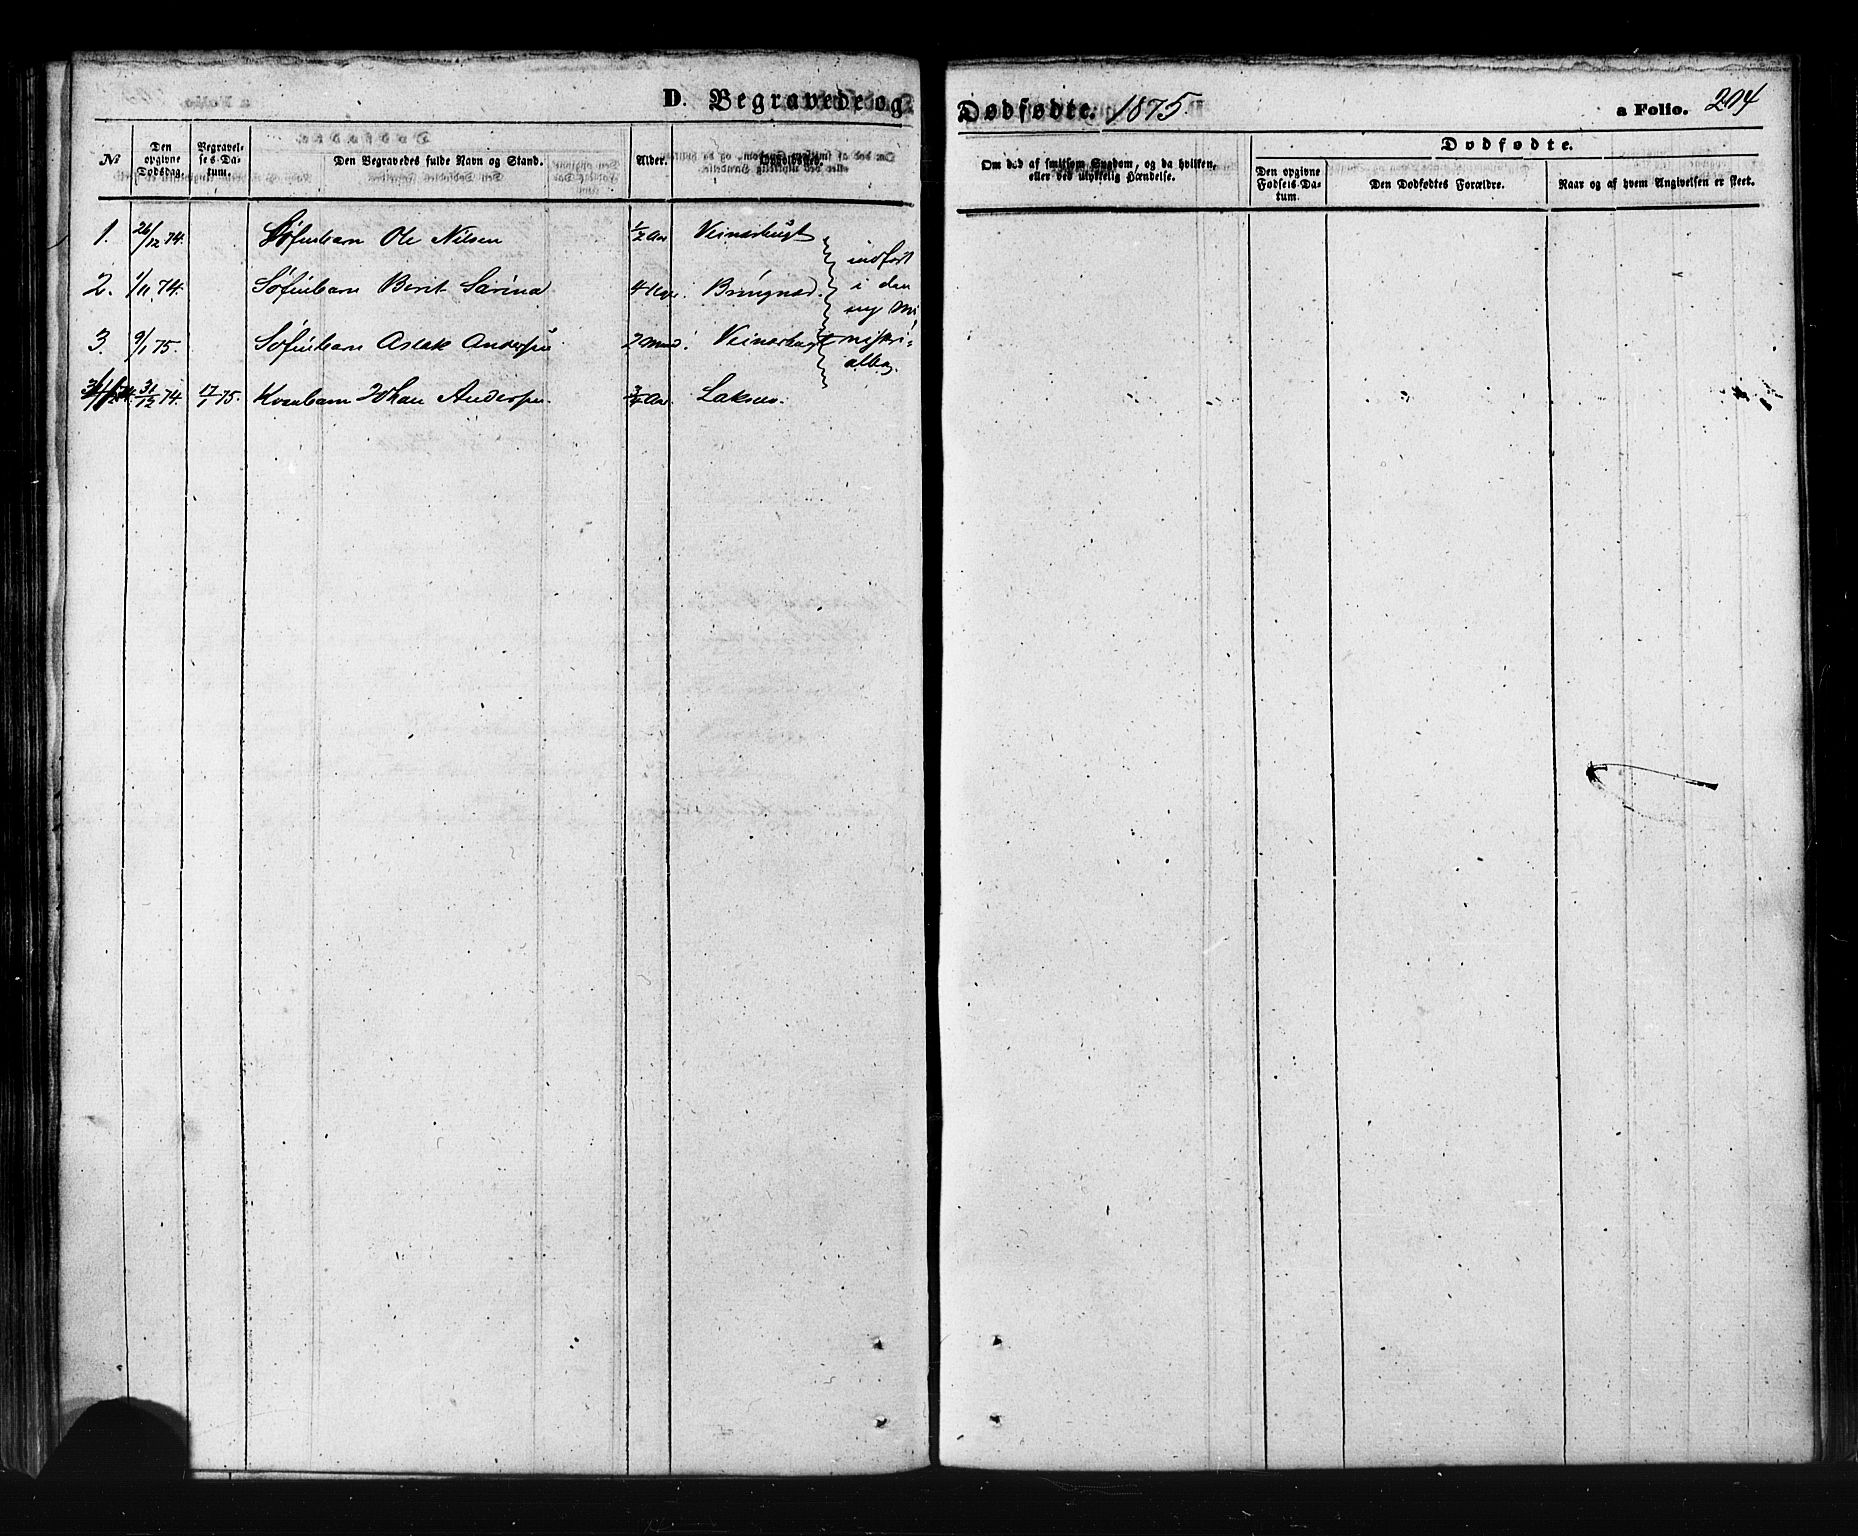 D. Begravede og Dødfødte. 1875. a Folio. 204
№ Den opgivne Dødsdag. Begravelses-Datum. Den Begravedes fulde Navn og Stand. Alder.
Om død af smitsom Sygdom, og da hvilken, eller ved ulykkelig Hændelse.
Dødfødte.
Den opgivne Fødsels-Datum. Den Dødfødtes Forældre. Naar og af hvem Angivelsen er skeet.
1. 26/12 74. Søfinbarn Ole Nilsen 1/2 Aar Veinesbugt
2. 1/11 74. Søfinbarn Berit Sarina 4 Uger.
3. 9/1 75. Søfinbarn Aslak Andersen 2 Mnd. Veinesbugt
31/12 74. 17/1 75. Kvenbarn Johan Andersen 3/4 Aar. Lakselv.
indført
i den
ny Mi-
nistri-
albog.